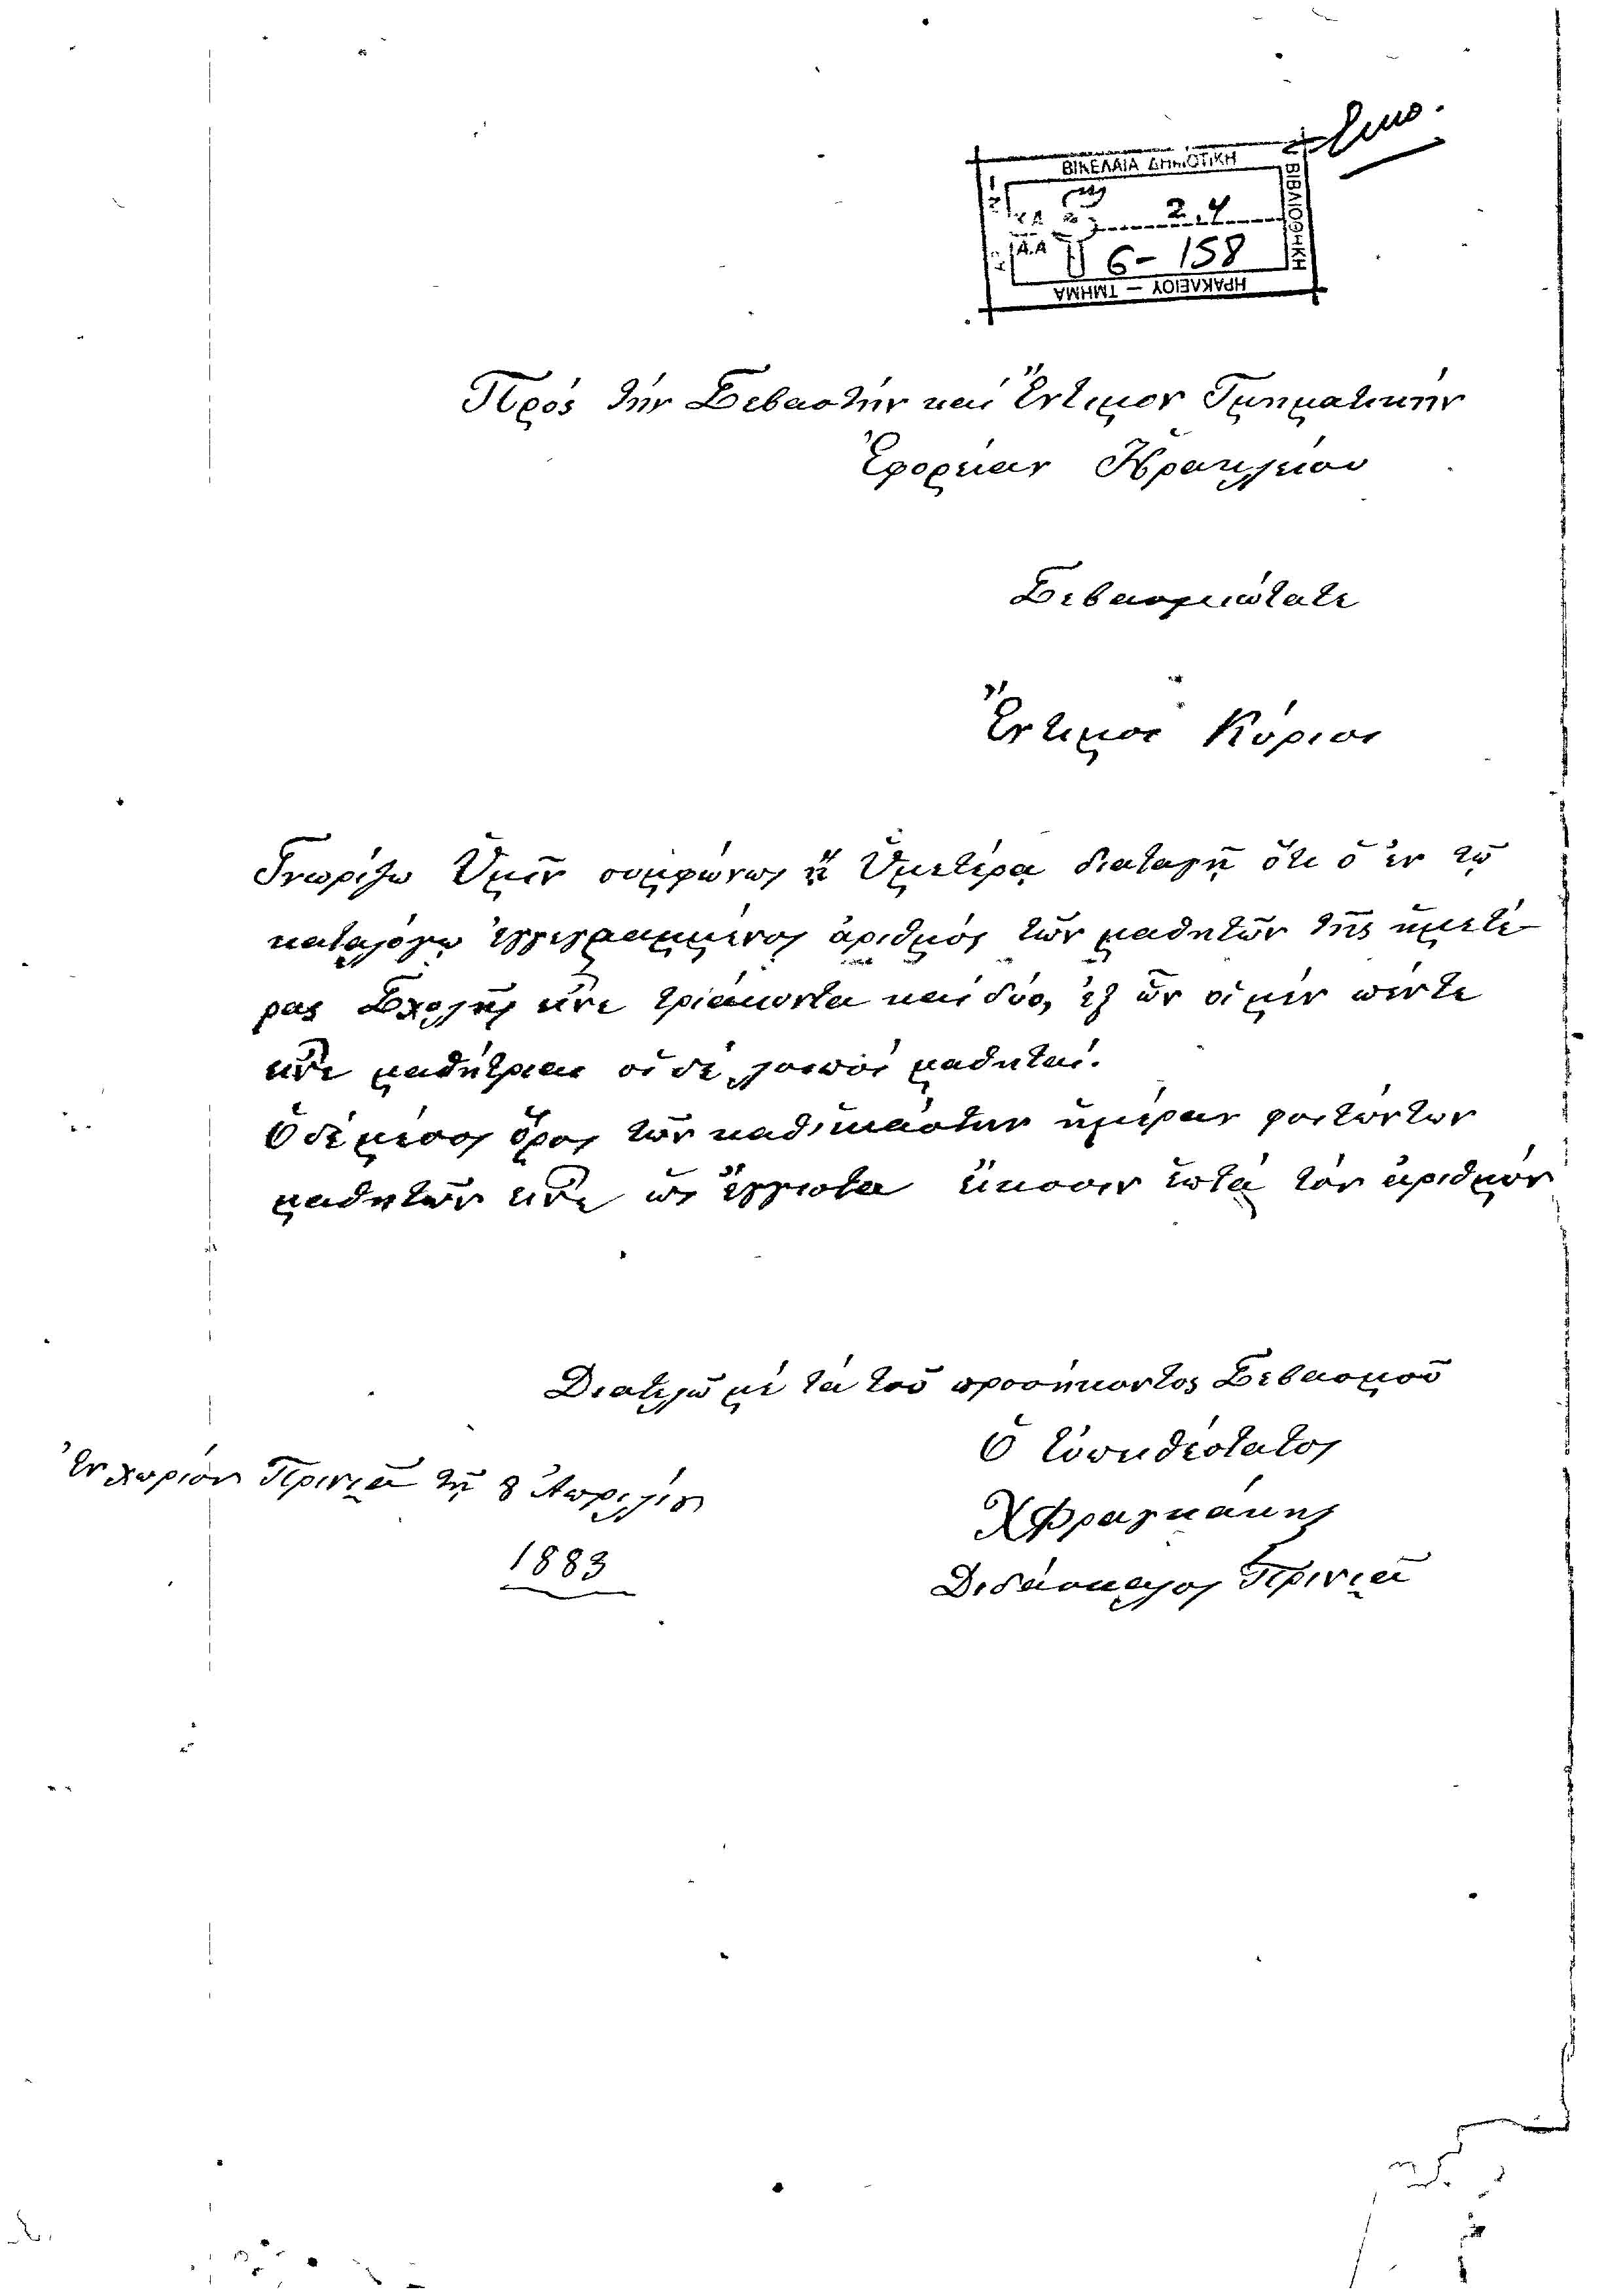 ΒΙΚΕΛΑΙΑ ΔΗΜΟΤΙΚΗ
ΒΙΒΛΙΟΘΗΚΗ
2.4
Α.Α 6-158
ΗΡΑΚΛΕΙΟΥ — ΤΜΗΜΑ
Πρός τήν Σεβαστήν καί Ἔντιμον Τμηματικήν
Ἐφορείαν Ἡρακλείου
Σεβασμιώτατε
Ἔντιμοι Κύριοι
Γνωρίζω Ὑμῖν συμφώνως τῇ Ὑμετέρᾳ διαταγῇ ὅτι ὁ ἐν τῷ
καταλόγῳ ἐγγεγραμμένος ἀριθμός τῶν μαθητῶν τῆς ἡμετέ-
ρας Σχολῆς εἶνε τριάκοντα καί δύο, ἐξ ὧν οἱ μέν πέντε
εἶνε μαθήτριαι οἱ δέ λοιποί μαθηταί.
Ὁ δέ μέσος ὅρος τῶν καθ' ἑκάστην ἡμέραν φοιτώντων
μαθητῶν εἶνε ὡς ἔγγιστα εἴκοσιν ἑπτά τόν ἀριθμόν
Διατελῶ μέ τά τοῦ προσήκοντος Σεβασμοῦ
Ὁ εὐπειθέστατος
Χ Φραγκάκης
Διδάσκαλος Πρινιᾶ
Ἐν χωρίον Πρινιᾶ τῇ 8 Ἀπριλίου
1883